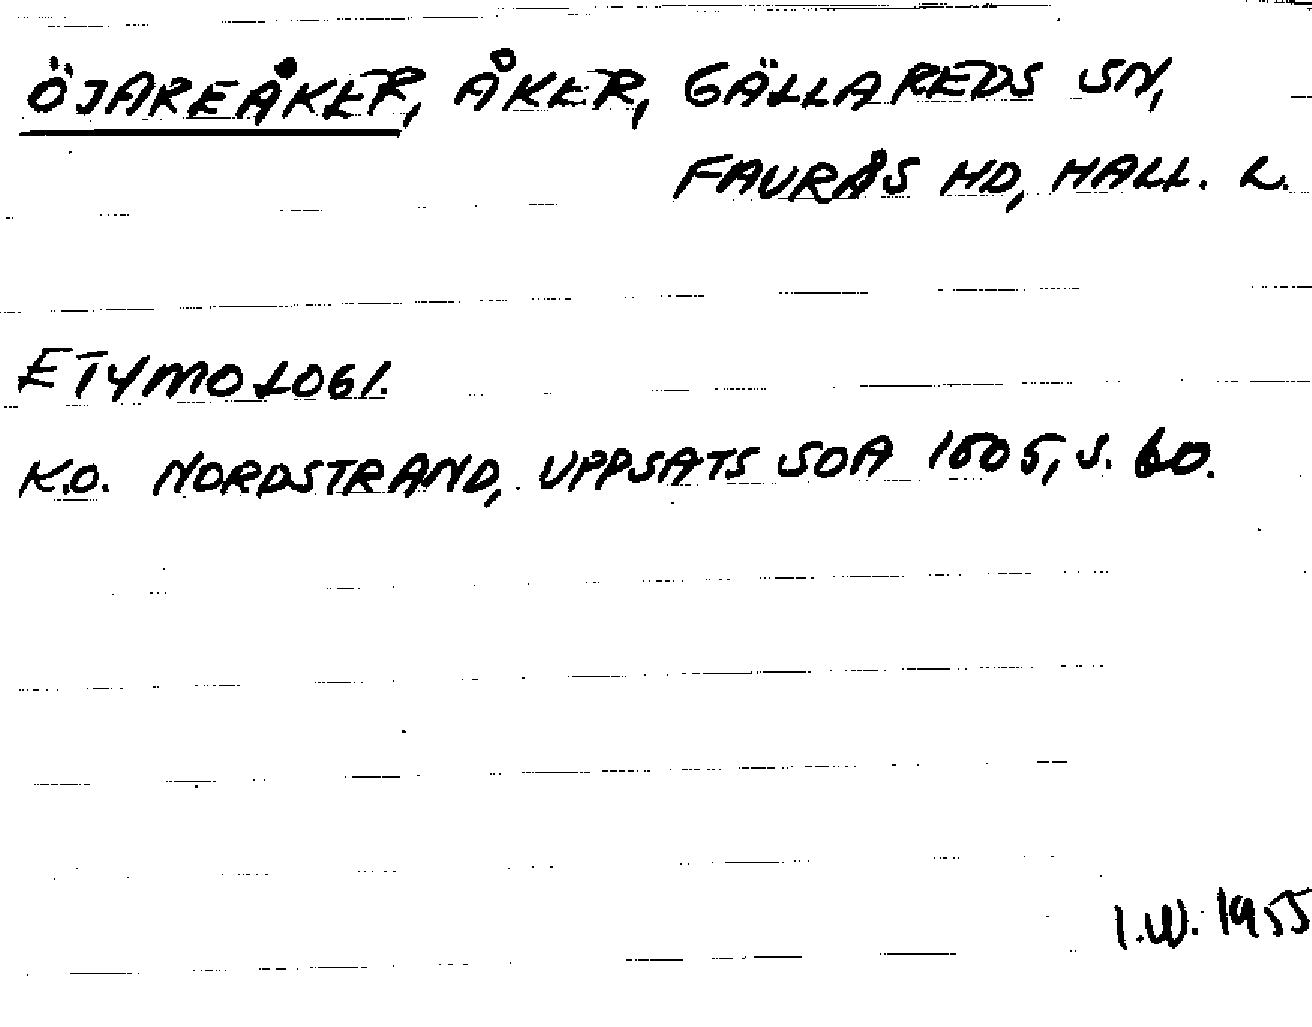 ÖJAREÅKER, ÅKER, GÄLLAREDS SN,
FAURÅS HD, HALL. L.
ETYMOLOGI.
K.O. NORDSTRAND, UPPSATS SOA 1505, S. 60.
I.W. 1955